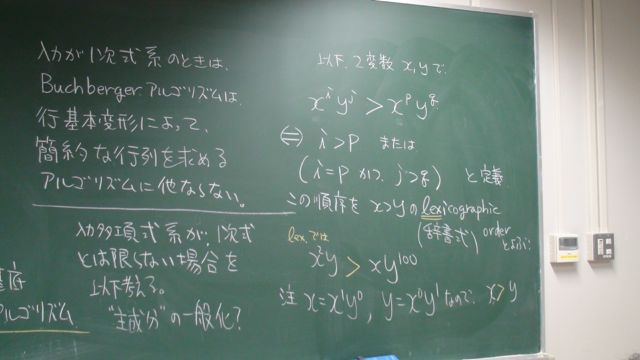 入力が1次式系のときは、
Buchbergerアルゴリズムは、
行基本変形によって、
簡約な行列を求める
アルゴリズムに他ならない。
入力多項式系が、1次式
とは限らない場合を
以下考える。
"主成分"の一般化?
基底
アルゴリズム
以下、2変数 x, y で、
x^i y^j > x^p y^q
⇔ i > p または
(i = p かつ j > q) と定義
この順序を x>y の lexicographic
(辞書式) order とよぶ:
lex. では
x²y > xy¹⁰⁰
注 x = x¹y⁰, y = x⁰y¹ なので、x > y